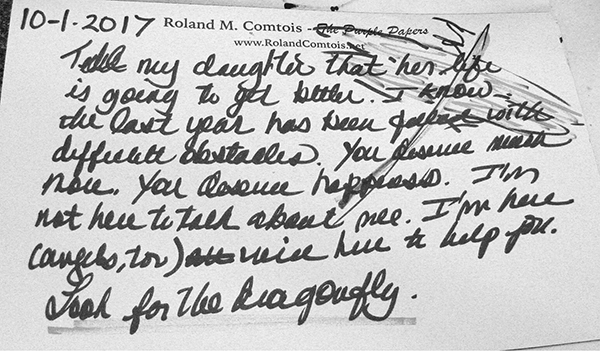 10-1-2017 Roland M. Comtois - The Purple Papers
www.RolandComtois.net
Tell my daughter that her life
is going to get better. I know
the last year has been filled with
difficult obstacles. You deserve much
more. You deserve happiness. I'm
not here to talk about me. I'm here
(angels, too) here to help you.
Look for the dragonfly.